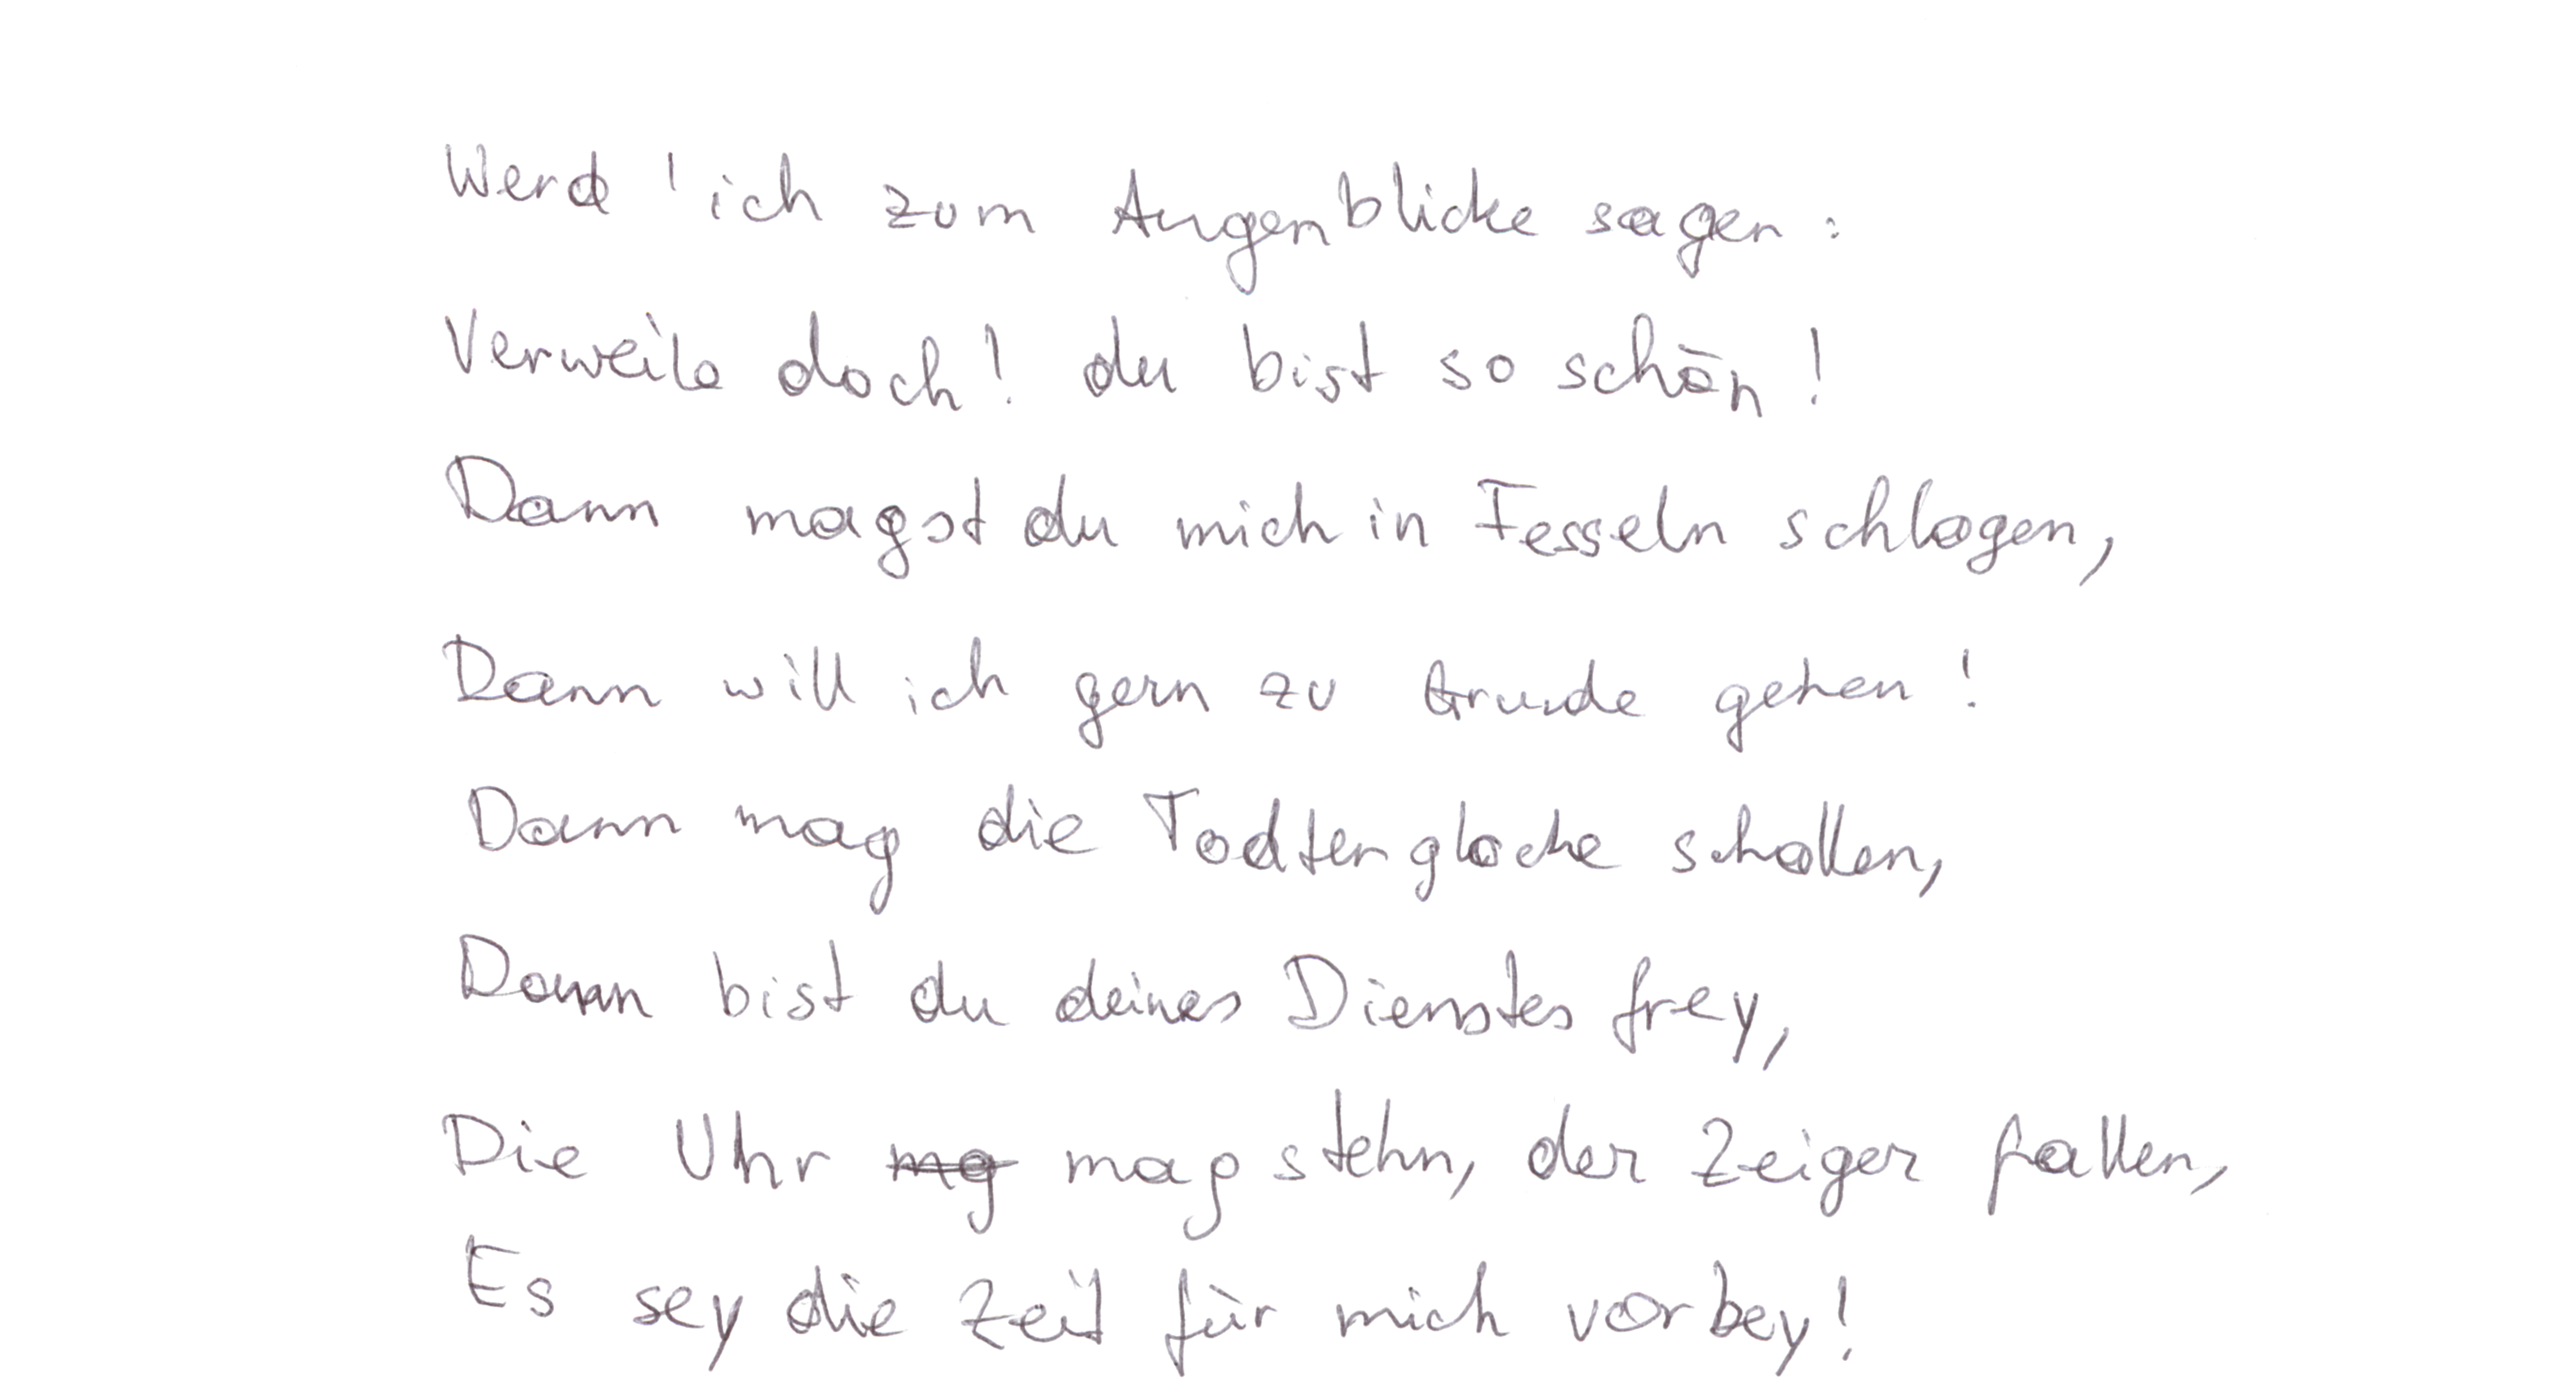 Werd' ich zum Augenblicke sagen:
Verweile doch! du bist so schön!
Dann magst du mich in Fesseln schlagen,
Dann will ich gern zu Grunde gehen!
Dann mag die Todtenglocke schallen,
Dann bist du deines Dienstes frey,
Die Uhr mg mag stehn, der Zeiger fallen,
Es sey die Zeit für mich vorbey!